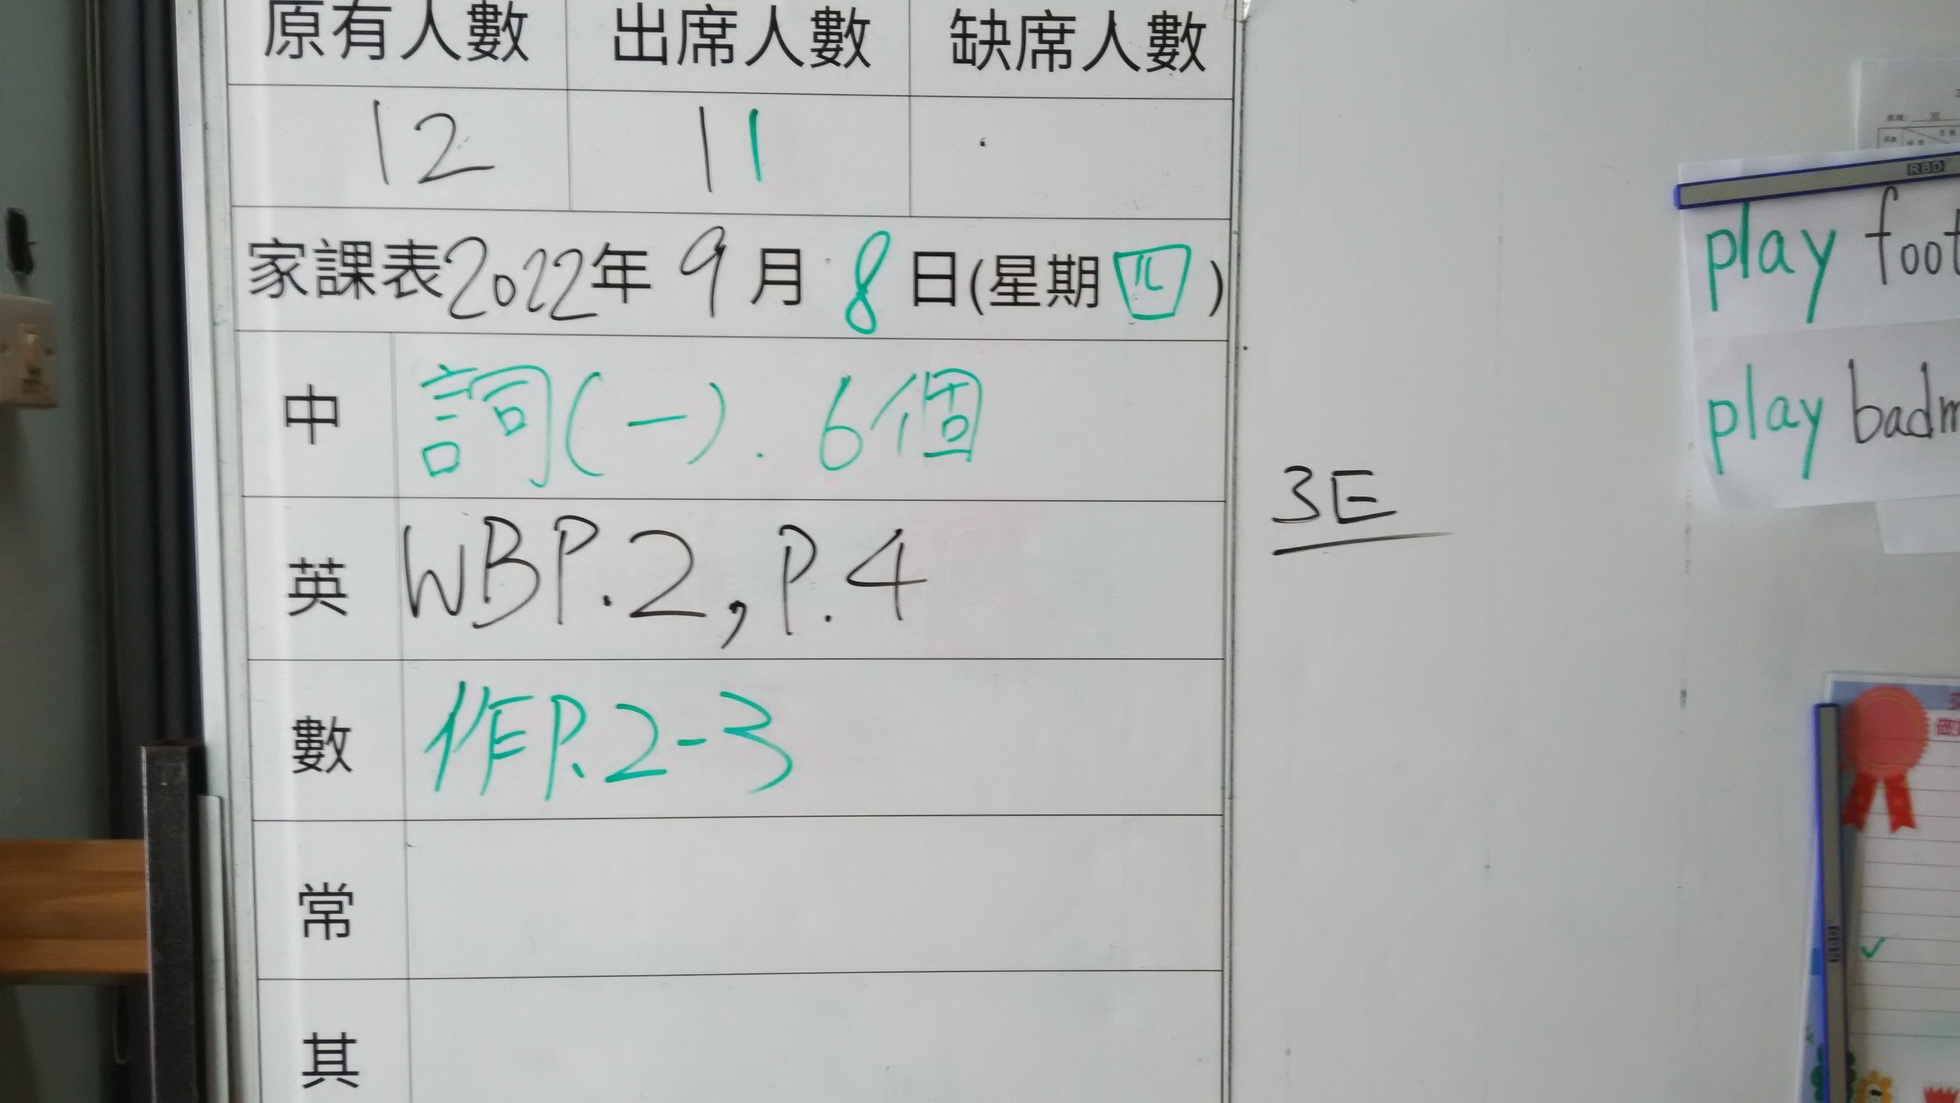 原有人數 出席人數 缺席人數
12 11
家課表2022年 9月 8日(星期四)
中 詞(一). 6個
英 WBP.2, P.4
數 作P.2-3
常
其
3E
RBD
play foot
play badm